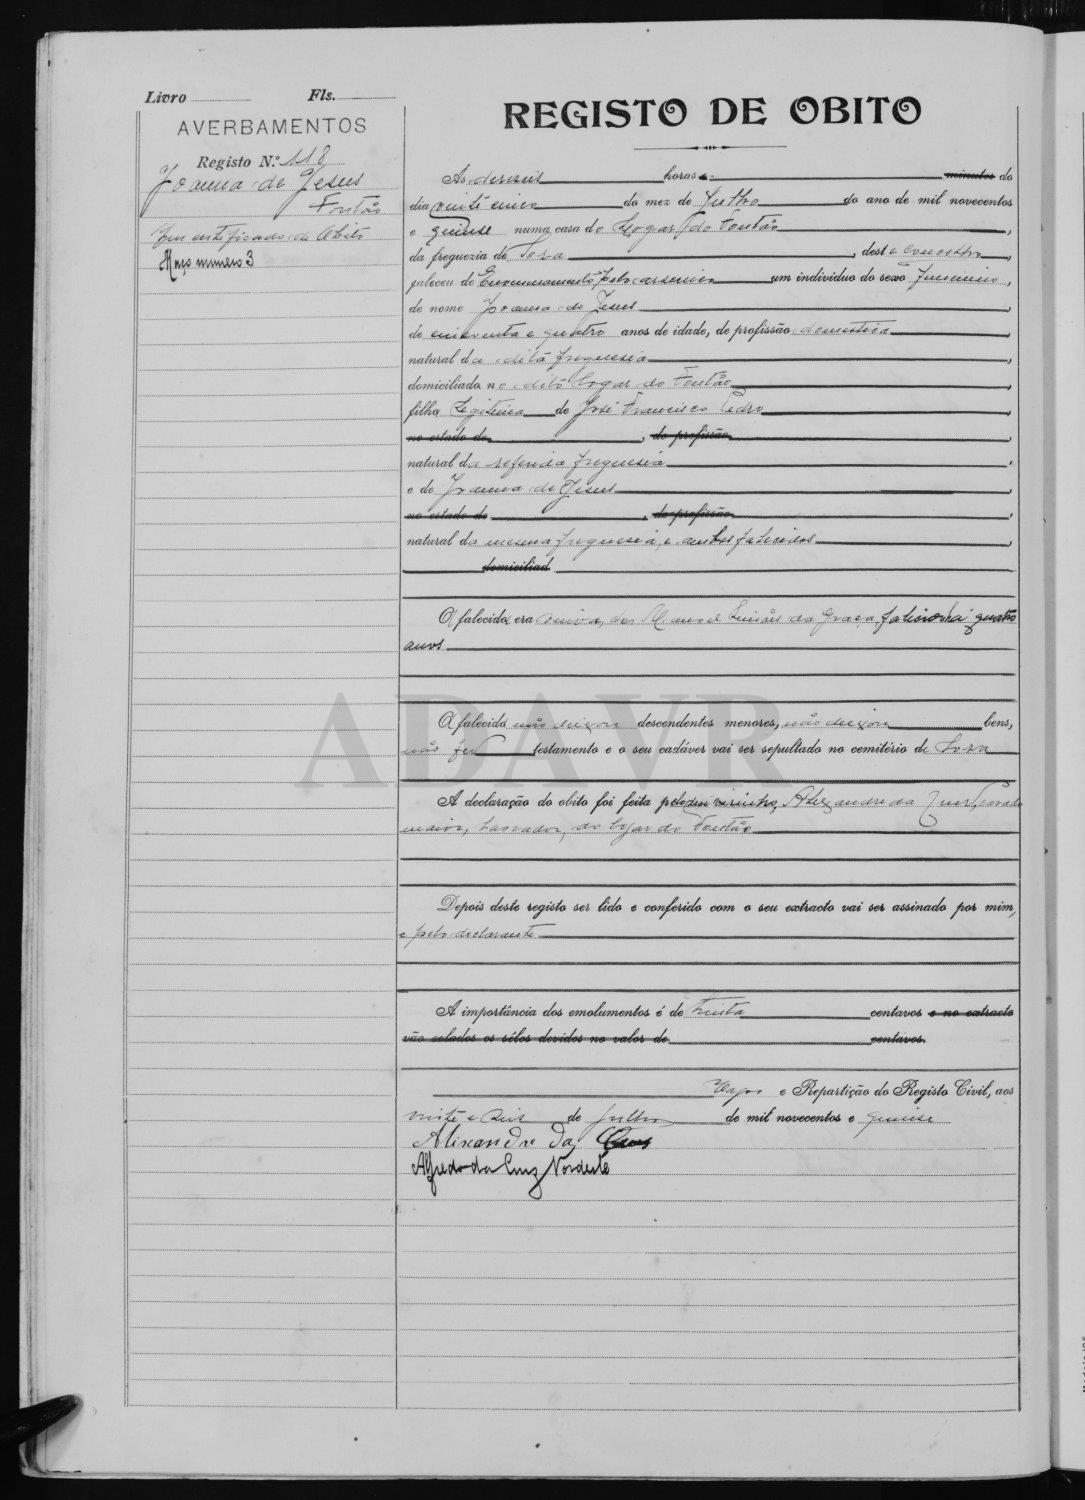 Livro Fls.
AVERBAMENTOS
Registo N.º 118
Joanna de Jesus
Fontão
Tem certificado de Obito
Março numero 3
REGISTO DE OBITO
As dezeseis horas e minutos do
dia vinte cinco do mez de Julho do ano de mil novecentos
e quinze numa casa do Logar do Fontão,
da freguezia de Soza, deste concelho,
faleceu de Envenenamento pelo arsenico um individuo do sexo femenino,
de nome Joanna de Jesus
de cincoenta e quatro anos de idade, de profissão domestica
natural da dita freguesia,
domiciliada no dito logar do Fontão,
filha legitima de José Francisco Pedro,
no estado de, de profissão,
natural da referida freguesia,
e de Joanna de Jesus,
no estado de, de profissão,
natural da mesma freguesia, e ambos falecidos,
domiciliad
A falecida era viuva, de Manuel Simões da Graça, falecido há quatro
anos
A falecida não deixou descendentes menores, não deixou bens,
não fez testamento e o seu cadáver vai ser sepultado no cemitério de Soza
A declaração do obito foi feita pelo seu visinho, Alexandre da Cruz, casado
maior, lavrador, do logar do Fontão
Depois deste registo ser lido e conferido com o seu extracto vai ser assinado por mim,
e pelo declarante
A importância dos emolumentos é de trinta centavos e no extracto
vão colados os sêlos devidos no valor de centavos.
Vagos e Repartição do Registo Civil, aos
vinte e seis de Julho de mil novecentos e quinze
Alixandre da Cruz
Alfredo da Cruz Nordeste
ADAVR